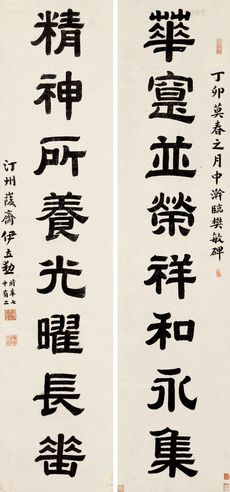 華寔並榮祥和永集
丁卯莫春之月中澣臨樊敏碑
精神所養光曜長垂
汀州葰齋伊立勳時年七
十有二